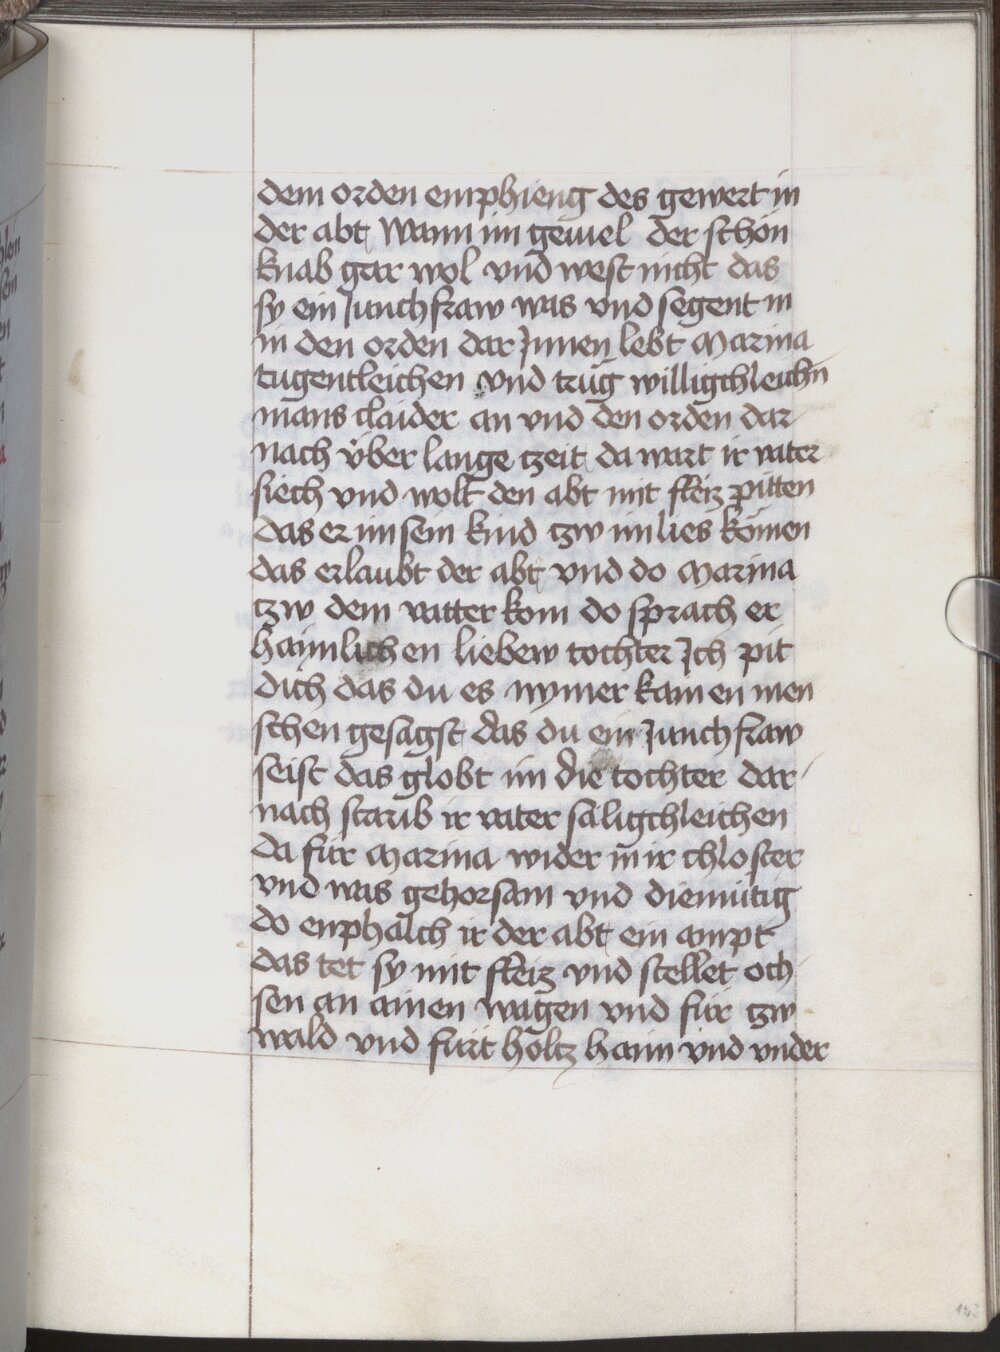 dem orden emphieng des gewert in
der abt Wann im geuiel der schon
knab gar wol vnd west nicht das
sy ein Junchfraw was vnd segent in
in den orden dar Jnnen lebt Marina
tugentleichen vnd trug willigchleichn
mans claider an vnd den orden dar
nach vber lange tzeit da wart ir vater
siech vnd wolt den abt mit fleiz pitten
das er im sein kind tzw im lies komen
das erlaubt der abt vnd do Marina
tzw dem vatter kom do sprach er
haimlichen liebew tochter Ich pit
dich das du es nymer kainen men
schen gesagst das du ein Junchfraw
seist das globt im die tochter dar
nach starib ir vater säligchleichen
da für Marina wider in ir chloster
vnd was gehorsam vnd diemütig
do enphalch ir der abt ein ampt
das tet sy mit fleiz vnd stellet och
sen an ainen wagen vnd für tzw
wald vnd fürt holtz haim vnd vnder